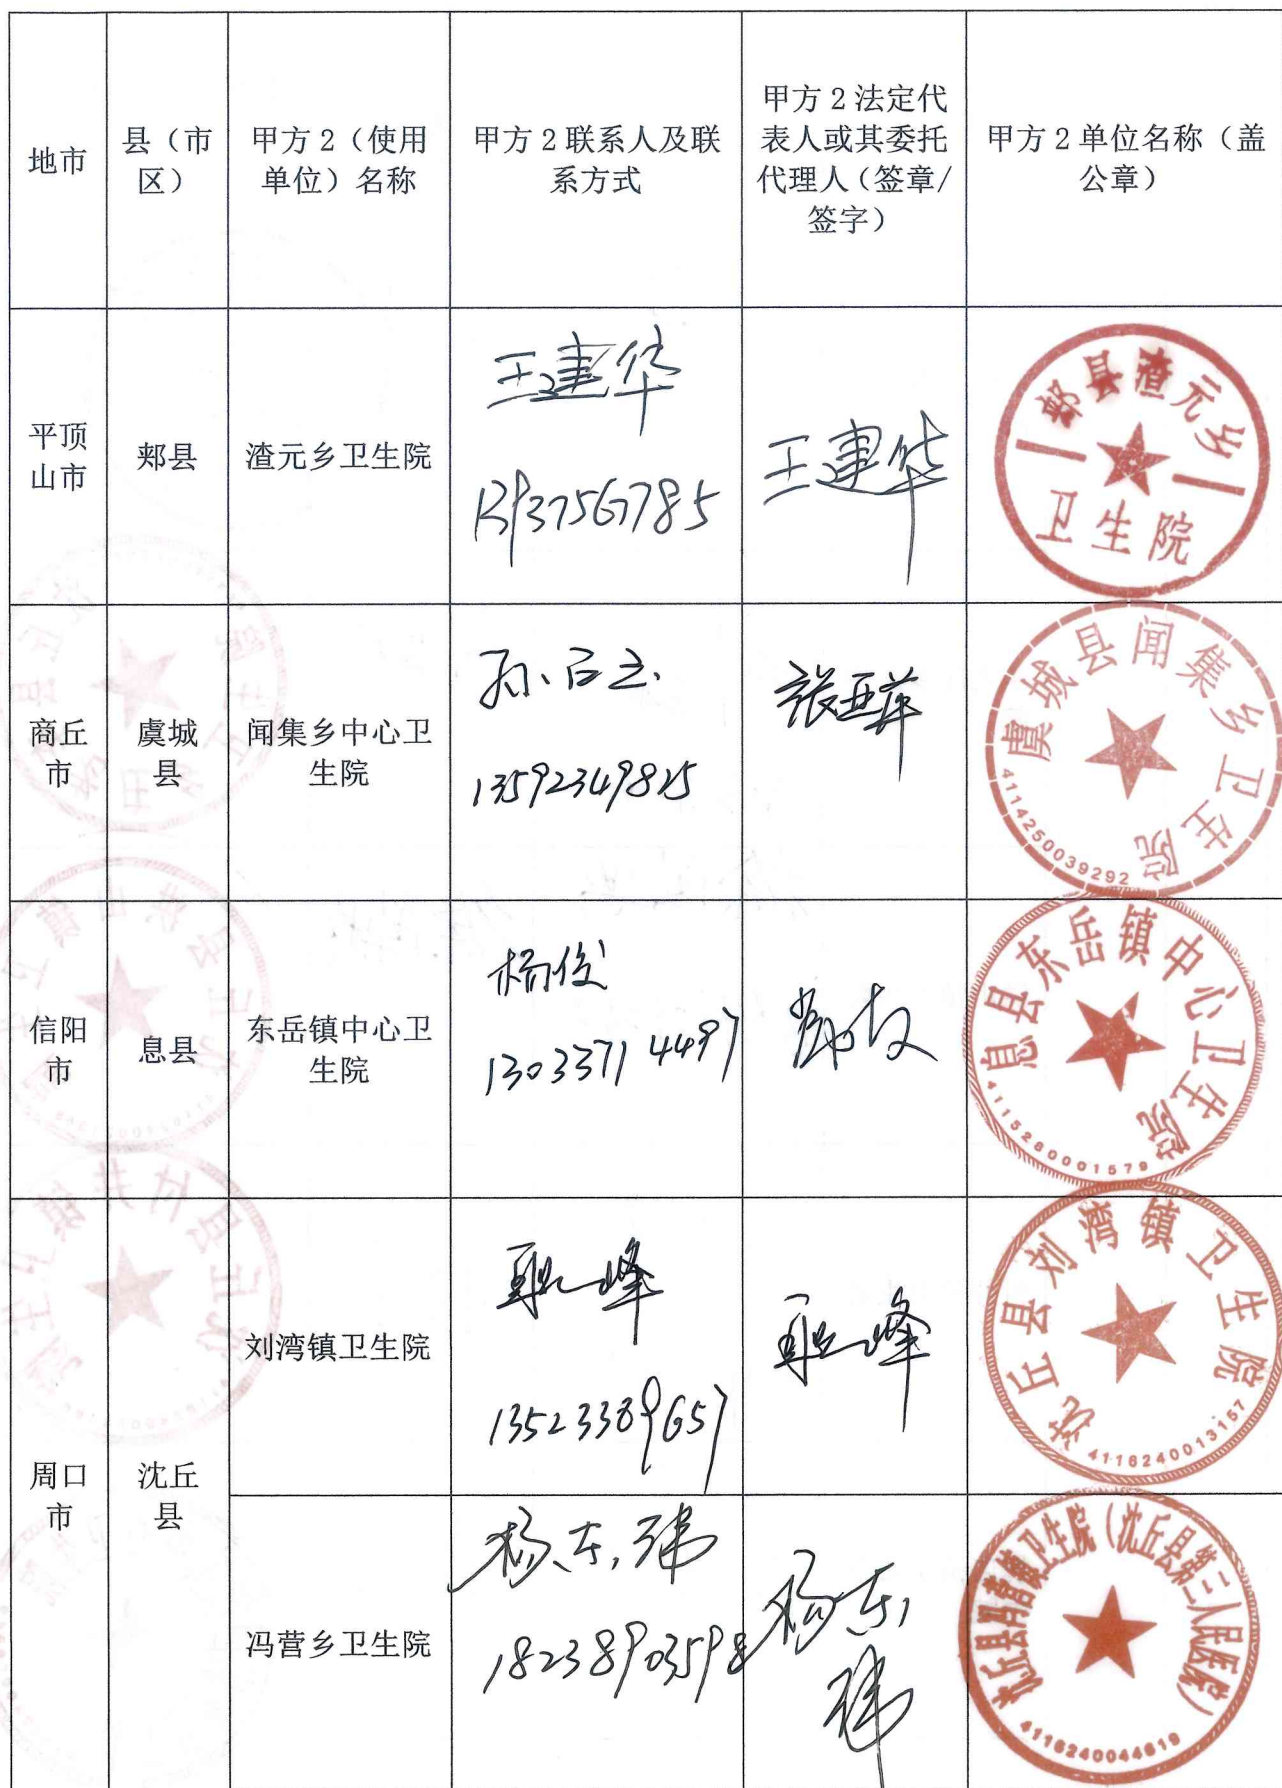 地市
县（市
区）
甲方2（使用
单位）名称
甲方2联系人及联
系方式
甲方2法定代
表人或其委托
代理人（签章/
签字）
甲方2单位名称（盖
公章）
平顶
山市
郏县
渣元乡卫生院
王建华
王建华
郏县渣元乡
卫生院
商丘
市
虞城
县
闻集乡中心卫
生院
13592349825
张亚萍
虞城县闻集乡卫生院
4114250039292
信阳
市
息县
东岳镇中心卫
生院
杨俊
13033714497
息县东岳镇中心卫生院
4115280001579
周口
市
沈丘
县
刘湾镇卫生院
13523389657
沈丘县刘湾镇卫生院
4116240013157
冯营乡卫生院
杨东玮
18238903598
杨东
玮
沈丘县冯营镇卫生院（沈丘县第三人民医院）
4116240044619